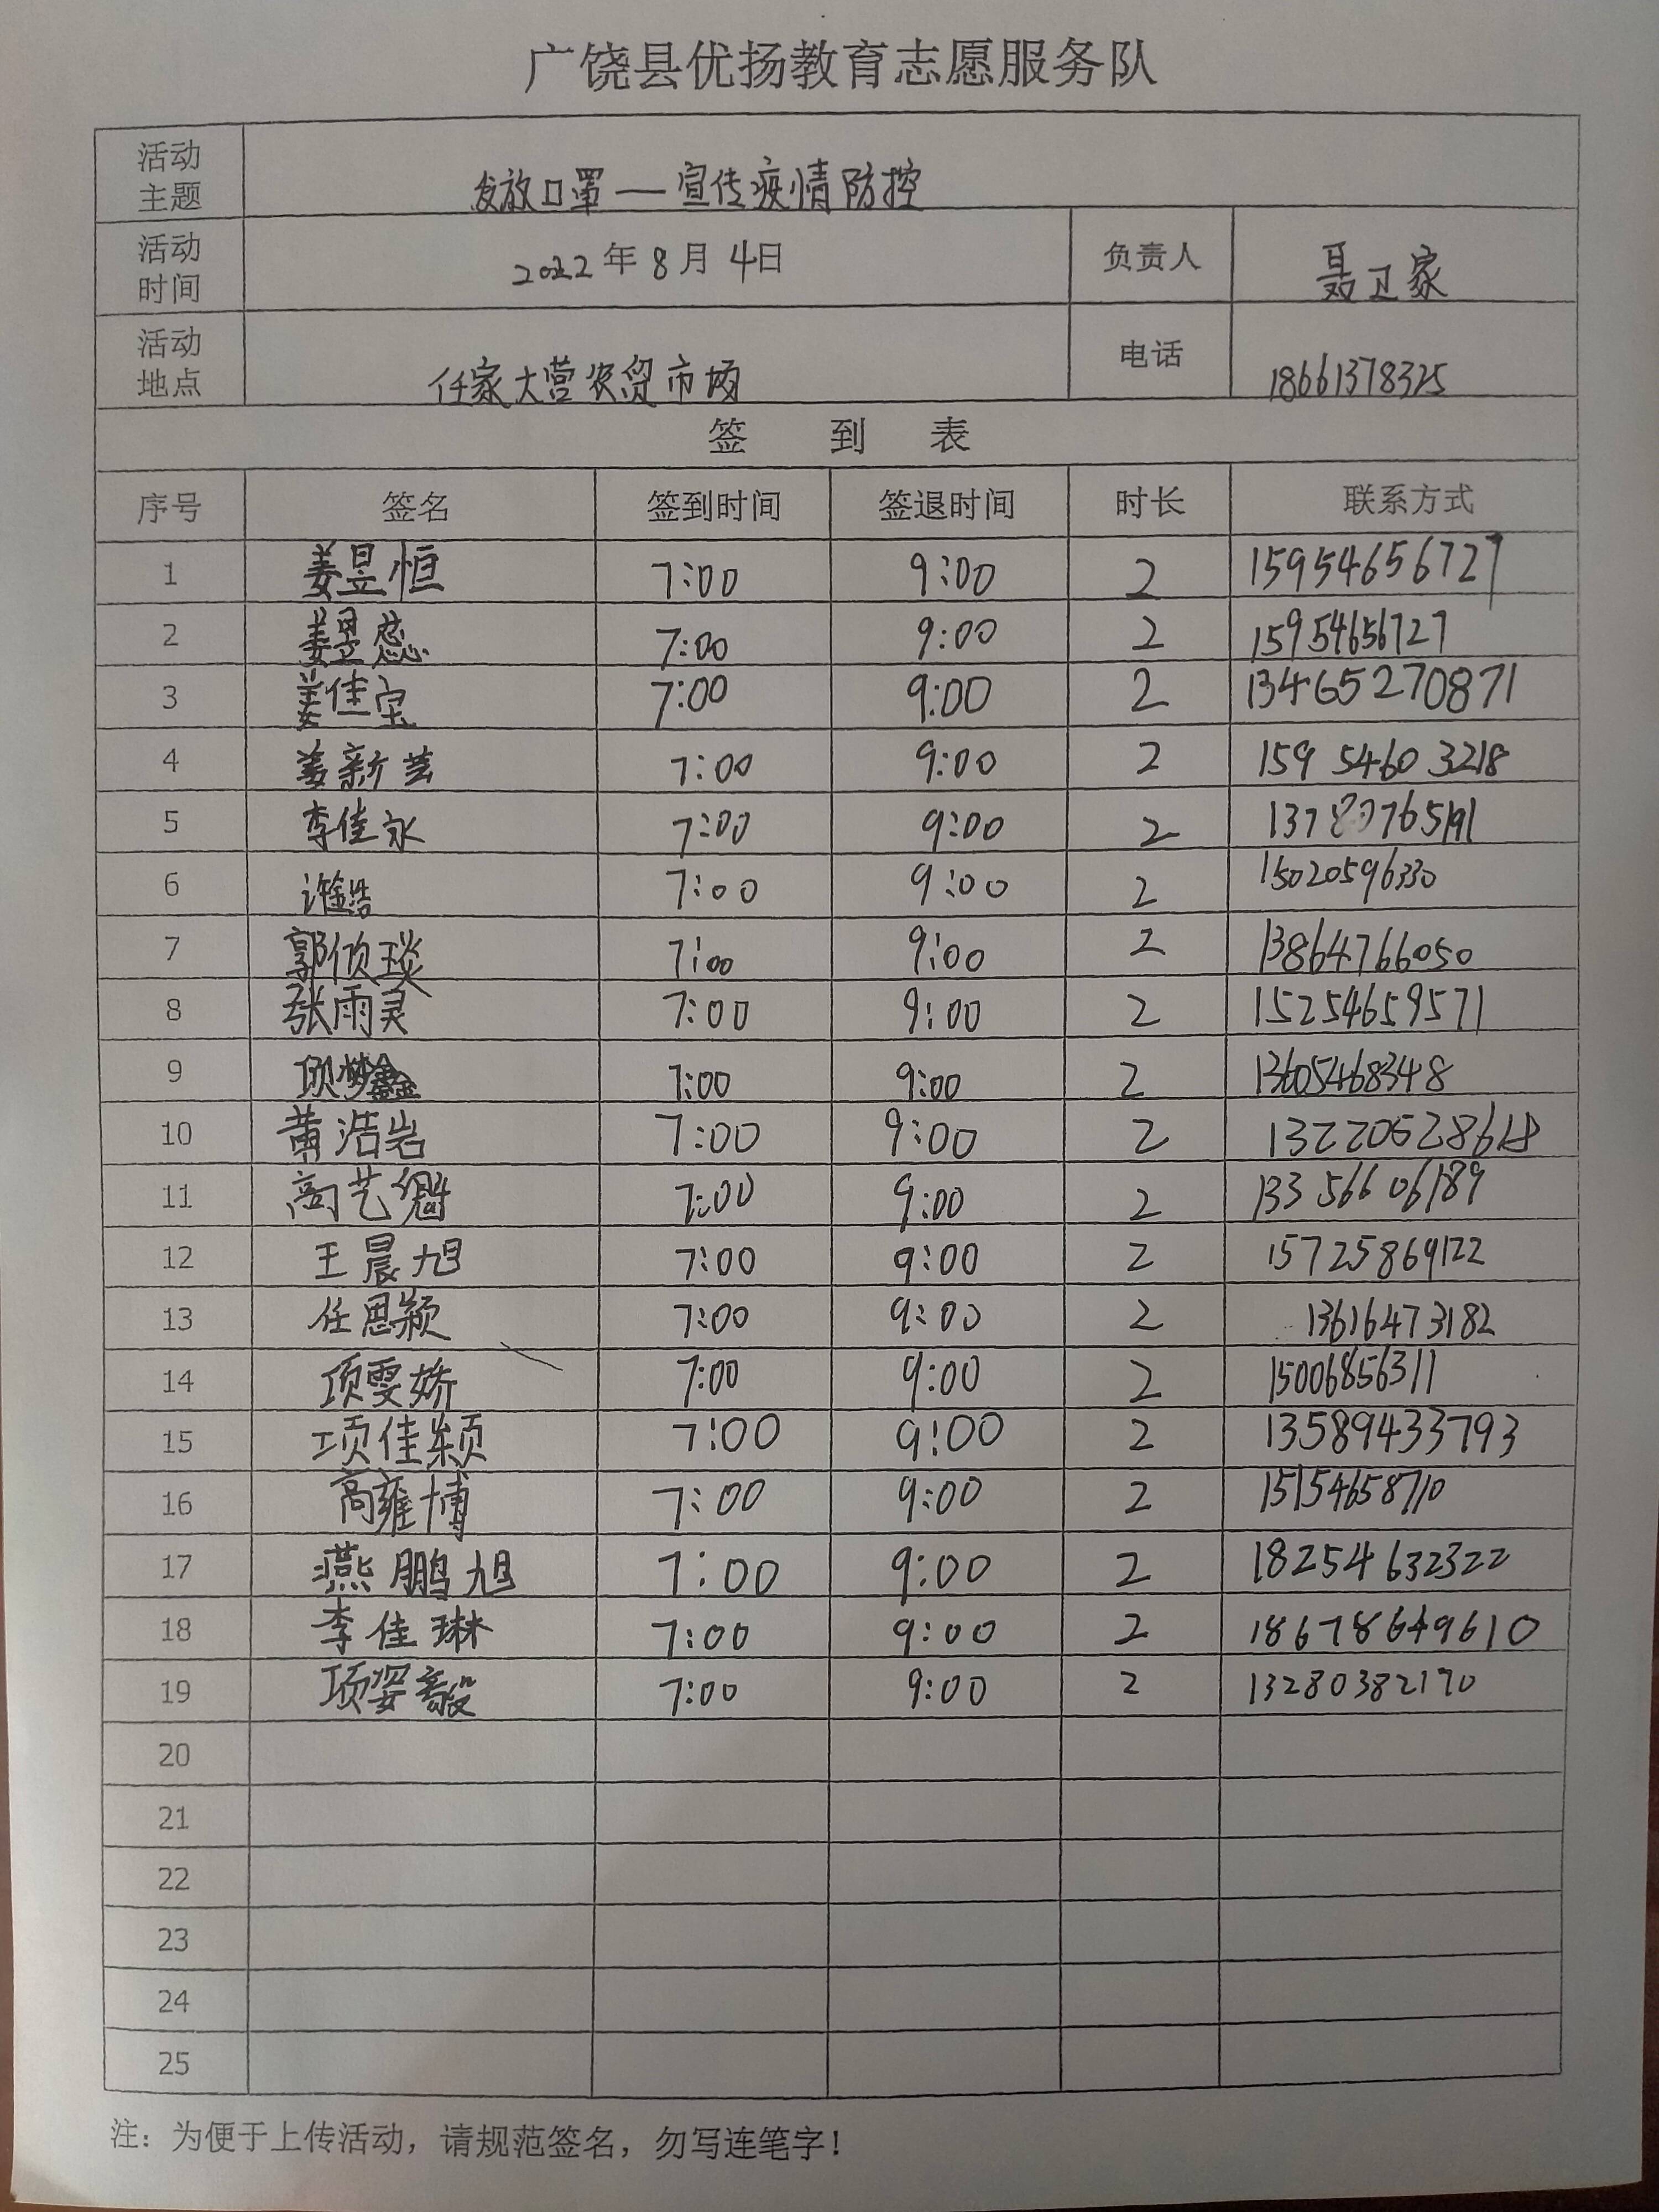 广饶县优扬教育志愿服务队
活动主题 发放口罩——宣传疫情防控
活动时间 2022年8月4日 负责人 聂卫家
活动地点 任家大营农贸市场 电话 18661378325
签 到 表
序号 签名 签到时间 签退时间 时长 联系方式
1 姜昱恒 7:00 9:00 2 15954656727
2 姜昱蕊 7:00 9:00 2 15954656727
3 姜佳宝 7:00 9:00 2 13465270871
4 姜新芸 7:00 9:00 2 159 5460 3218
5 李佳永 7:00 9:00 2 13780765191
6 许鑫浩 7:00 9:00 2 15020596330
7 郭倾琰 7:00 9:00 2 13864766050
8 张雨灵 7:00 9:00 2 15254659571
9 项梦鑫 7:00 9:00 2 13605468348
10 黄浩岩 7:00 9:00 2 13220528618
11 高艺 7:00 9:00 2 133 566 06189
12 王晨旭 7:00 9:00 2 15725869122
13 任思颖 7:00 9:00 2 13616473182
14 项雯娇 7:00 9:00 2 15006856311
15 项佳颖 7:00 9:00 2 13589433793
16 高雍博 7:00 9:00 2 15154658710
17 燕鹏旭 7:00 9:00 2 18254632322
18 李佳琳 7:00 9:00 2 18678649610
19 项姿毅 7:00 9:00 2 13280382170
20
21
22
23
24
25
注：为便于上传活动，请规范签名，勿写连笔字！